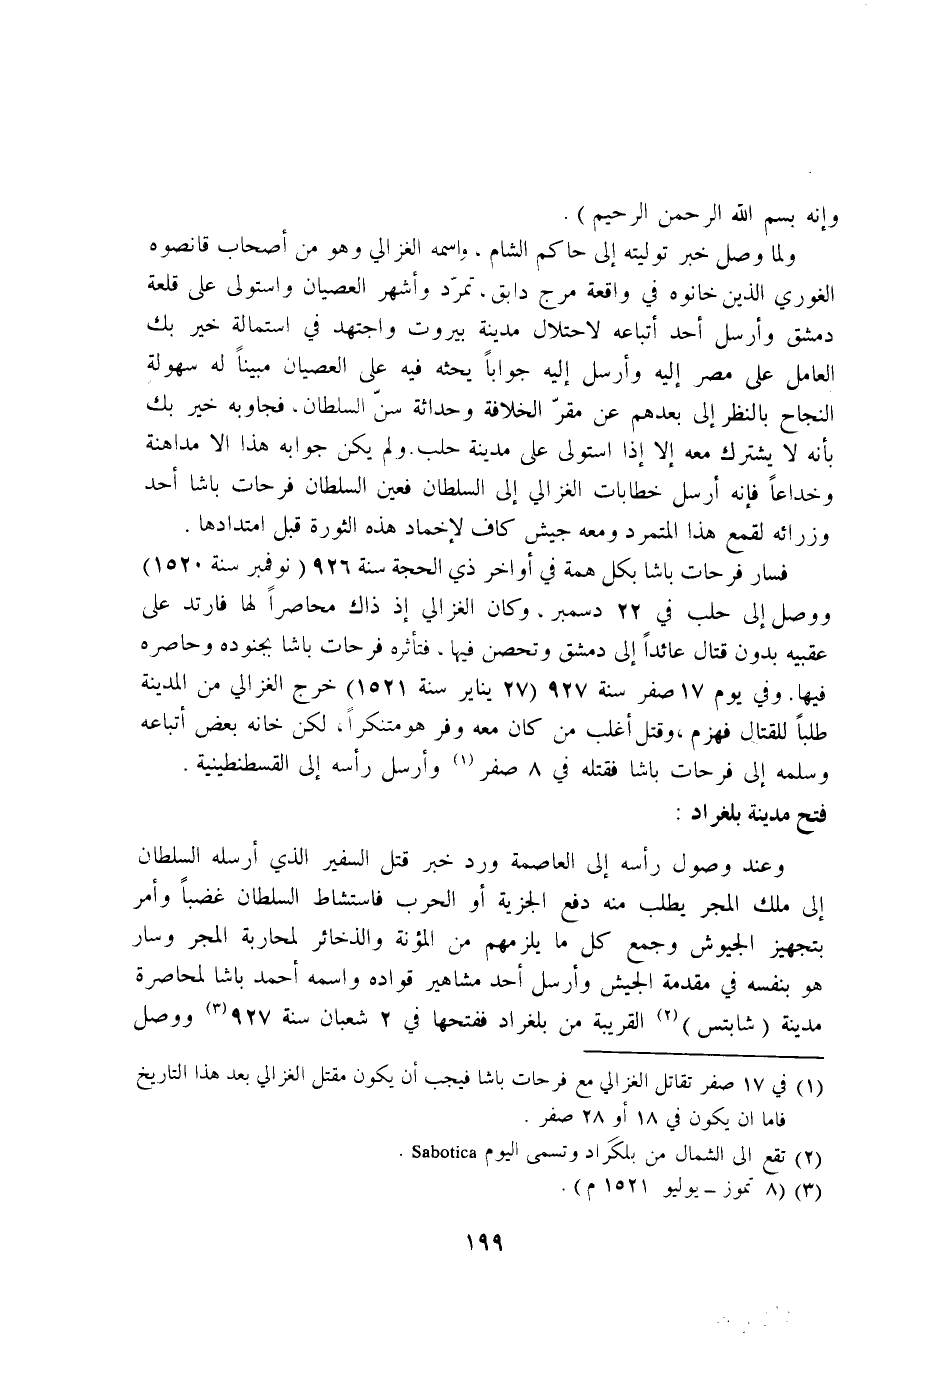 وإنه بسم الله الرحمن الرحيم ) .
ولما وصل خبر توليته إلى حاكم الشام . واسمه الغزالي وهو من أصحاب قانصوه
الغوري الذين خانوه في واقعة مرج دابق . تمرّد وأشهر العصيان واستولى على قلعة
دمشق وأرسل أحد أتباعه لاحتلال مدينة بيروت واجتهد في استمالة خير بك
العامل على مصر إليه وأرسل إليه جواباً يحثه فيه على العصيان مبيناً له سهولة
النجاح بالنظر إلى بعدهم عن مقرّ الخلافة وحداثة سنّ السلطان . فجاوبه خير بك
بأنه لا يشترك معه إلا إذا استولى على مدينة حلب . ولم يكن جوابه هذا الا مداهنة
وخداعاً فإنه أرسل خطابات الغزالي إلى السلطان فعين السلطان فرحات باشا أحد
وزرائه لقمع هذا المتمرد ومعه جيش كاف لإخماد هذه الثورة قبل امتدادها .
فسار فرحات باشا بكل همة في أواخر ذي الحجة سنة ٩٢٦ ( نوفمبر سنة ١٥٢٠)
ووصل إلى حلب في ٢٢ دسمبر . وكان الغزالي إذ ذاك محاصراً لها فارتد على
عقبيه بدون قتال عائداً إلى دمشق وتحصن فيها . فتأثره فرحات باشا بجنوده وحاصره
فيها . وفي يوم ١٧ صفر سنة ٩٢٧ (٢٧ يناير سنة ١٥٢١) خرج الغزالي من المدينة
طلباً للقتال فهزم ،وقتل أغلب من كان معه وفر هو متنكراً، لكن خانه بعض أتباعه
وسلمه إلى فرحات باشا فقتله في ٨ صفر (١) وأرسل رأسه إلى القسطنطينية .
فتح مدينة بلغراد :
وعند وصول رأسه إلى العاصمة ورد خبر قتل السفير الذي أرسله السلطان
إلى ملك المجر يطلب منه دفع الجزية أو الحرب فاستشاط السلطان غضباً وأمر
بتجهيز الجيوش وجمع كل ما يلزمهم من المؤنة والذخائر لمحاربة المجر وسار
هو بنفسه في مقدمة الجيش وأرسل أحد مشاهير قواده واسمه أحمد باشا لمحاصرة
مدينة ( شابتس ) (٢) القريبة من بلغراد ففتحها في ٢ شعبان سنة ٩٢٧ (٣) ووصل
(١) في ١٧ صفر تقاتل الغزالي مع فرحات باشا فيجب أن يكون مقتل الغزالي بعد هذا التاريخ
فاما ان يكون في ١٨ أو ٢٨ صفر .
(٢) تقع الى الشمال من بلكَراد وتسمى اليوم Sabotica .
(٣) (٨ تموز - يوليو ١٥٢١ م ) .
١٩٩